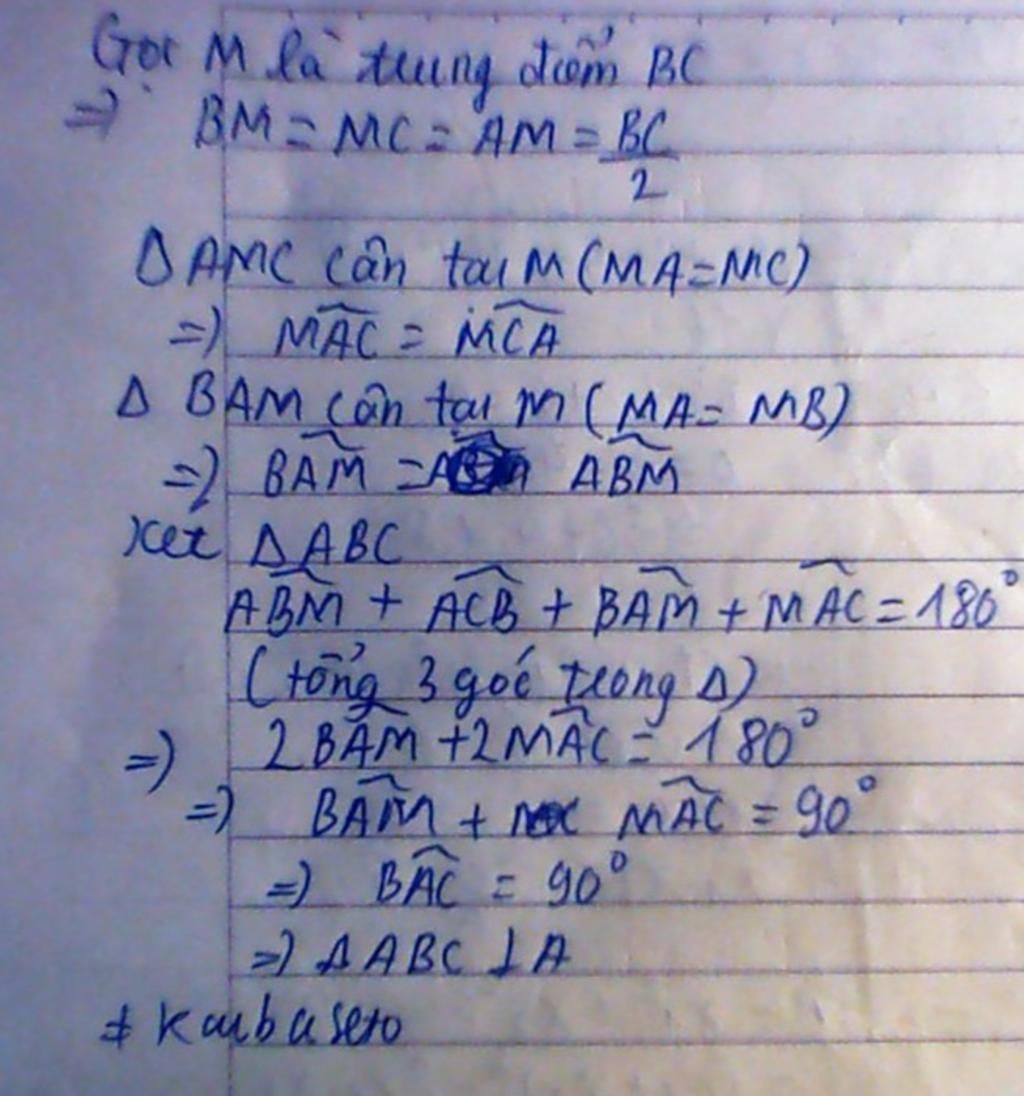 Gọi M là trung điểm BC
=> BM = MC = AM = BC/2
Δ AMC cân tại M (MA = MC)
=> MAC = MCA
Δ BAM cân tại M (MA = MB)
=> BAM = ABM
Xét Δ ABC
ABM + ACB + BAM + MAC = 180°
(tổng 3 góc trong Δ)
=> 2BAM + 2MAC = 180°
=> BAM + MAC = 90°
=> BAC = 90°
=> Δ ABC ⊥ A